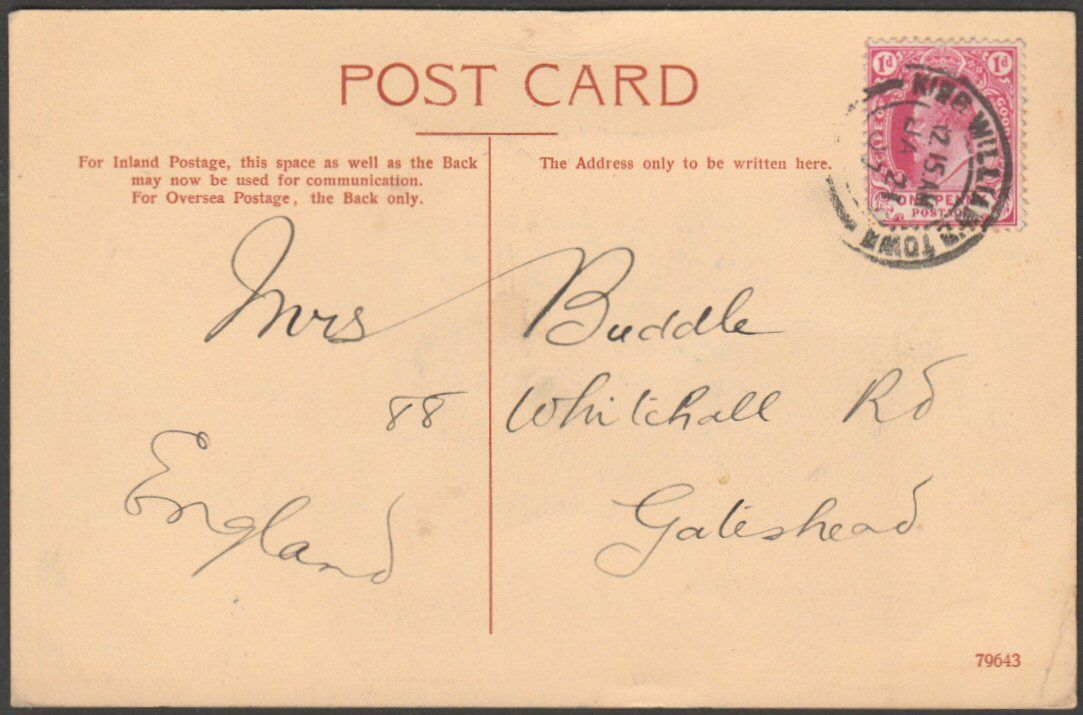 POST CARD
For Inland Postage, this space as well as the Back
may now be used for communication.
For Oversea Postage, the Back only.
The Address only to be written here.
1d 1d
GOOD
ONE PEN
POSTAG
KING WILLIAMS TOWN
12.15 AM
JA 21
Mrs Buddle
88 Whitehall Rd
Gateshead
England
79643